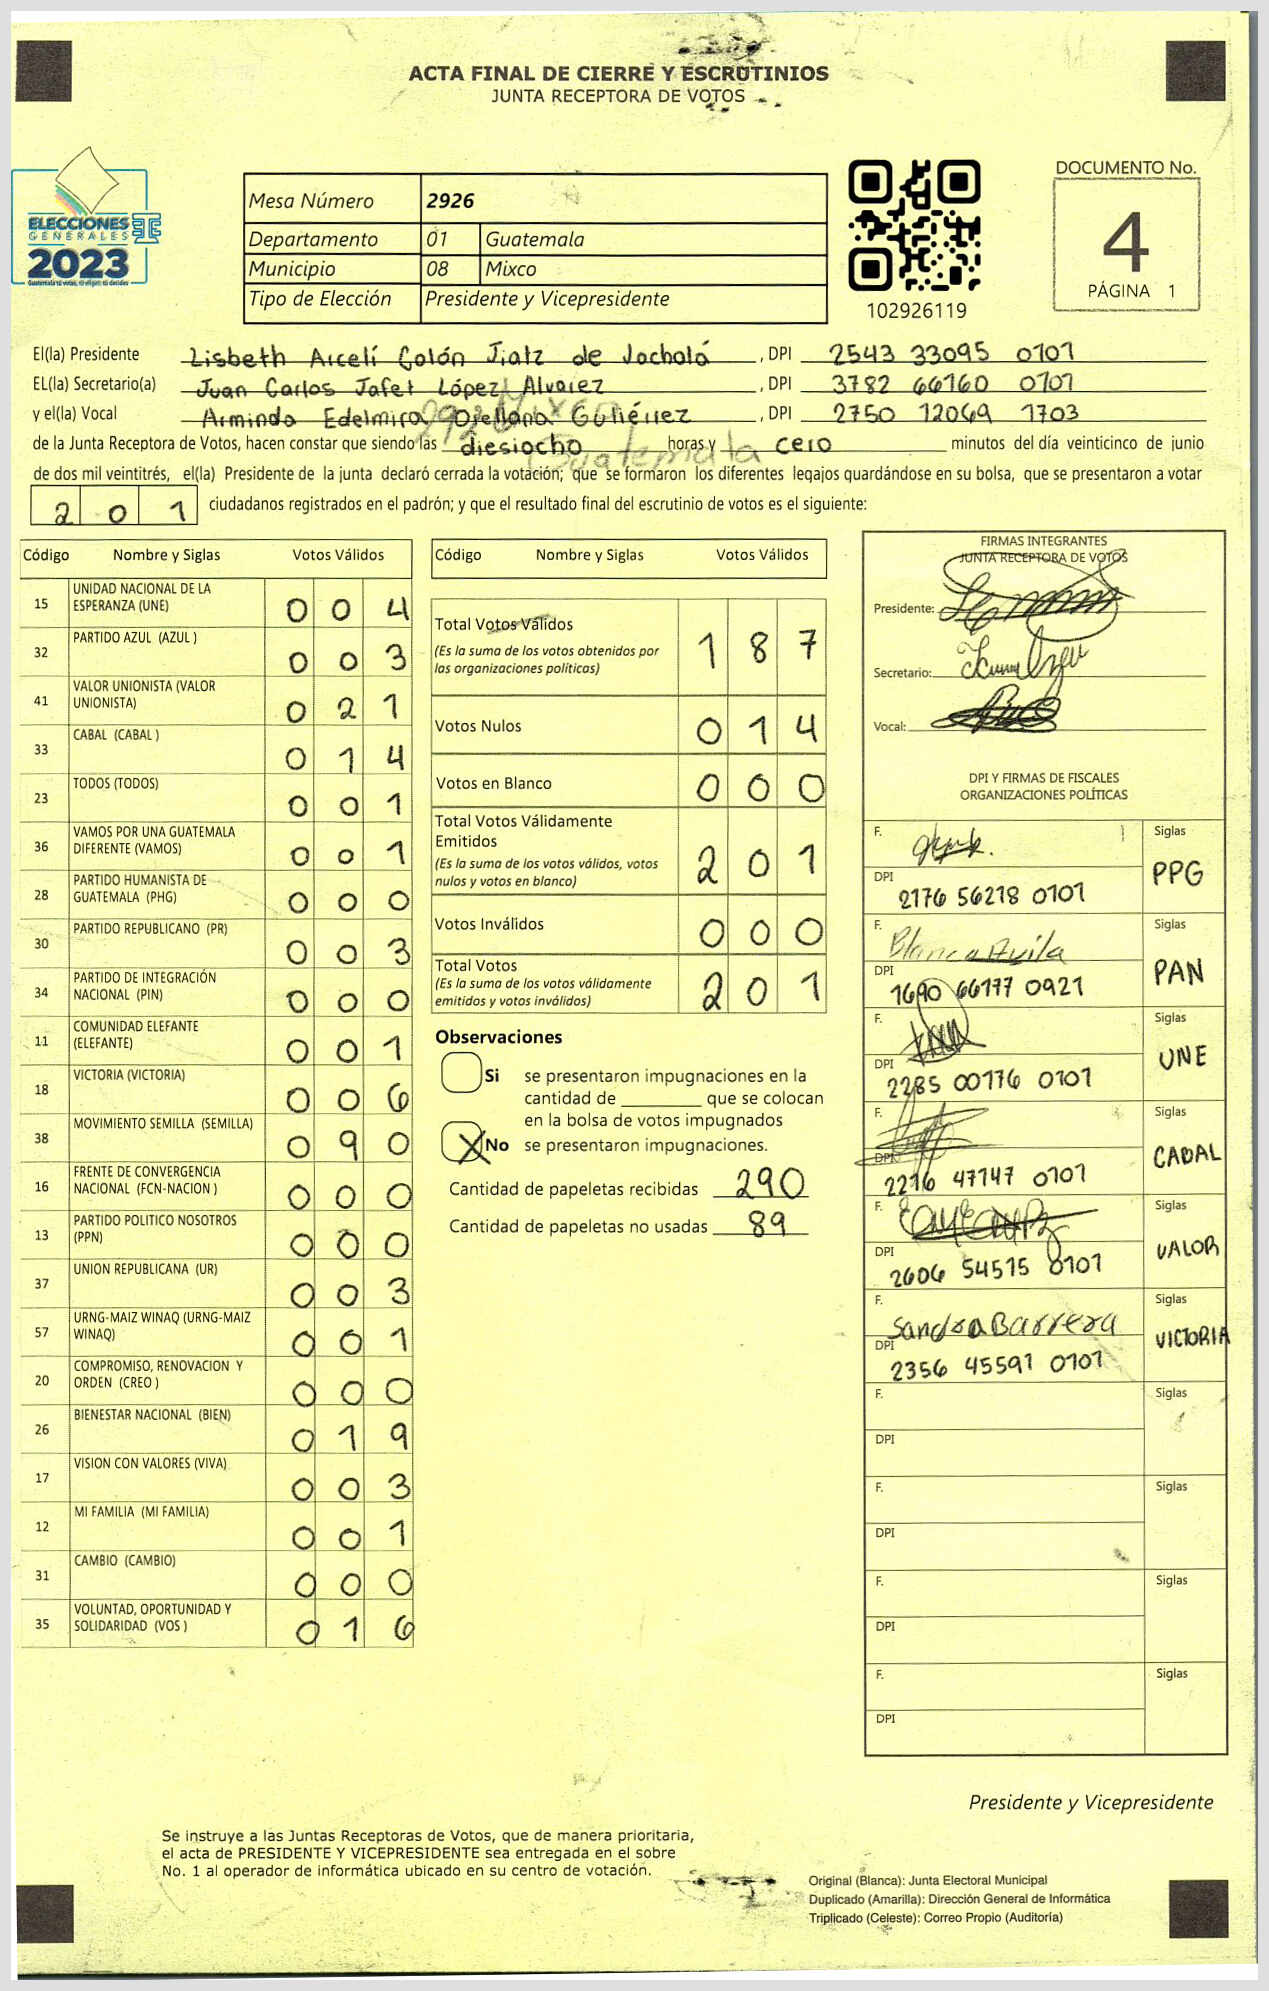 ACTA FINAL DE CIERRE Y ESCRUTINIOS
JUNTA RECEPTORA DE VOTOS
ELECCIONES
GENERALES
2023
Mesa Número 2926
Departamento 01 Guatemala
Municipio 08 Mixco
Tipo de Elección Presidente y Vicepresidente
102926119
DOCUMENTO No.
4
PÁGINA 1
El(la) Presidente Lisbeth Arcelí Colón Jiatz de Jocholá , DPI 2543 33095 0101
EL(la) Secretario(a) Juan Carlos Jafet López Alvarez , DPI 3782 66160 0101
y el(la) Vocal Armindo Edelmira Orellana Gutiérrez , DPI 2750 12069 1703
de la Junta Receptora de Votos, hacen constar que siendo las diesiocho horas y cero minutos del día veinticinco de junio
de dos mil veintitrés, el(la) Presidente de la junta declaró cerrada la votación; que se formaron los diferentes legajos guardándose en su bolsa, que se presentaron a votar
201 ciudadanos registrados en el padrón; y que el resultado final del escrutinio de votos es el siguiente:
Código Nombre y Siglas Votos Válidos
15 UNIDAD NACIONAL DE LA ESPERANZA (UNE) 0 0 4
32 PARTIDO AZUL (AZUL ) 0 0 3
41 VALOR UNIONISTA (VALOR UNIONISTA) 0 2 1
33 CABAL (CABAL ) 0 1 4
23 TODOS (TODOS) 0 0 1
36 VAMOS POR UNA GUATEMALA DIFERENTE (VAMOS) 0 0 1
28 PARTIDO HUMANISTA DE GUATEMALA (PHG) 0 0 0
30 PARTIDO REPUBLICANO (PR) 0 0 3
34 PARTIDO DE INTEGRACIÓN NACIONAL (PIN) 0 0 0
11 COMUNIDAD ELEFANTE (ELEFANTE) 0 0 1
18 VICTORIA (VICTORIA) 0 0 6
38 MOVIMIENTO SEMILLA (SEMILLA) 0 9 0
16 FRENTE DE CONVERGENCIA NACIONAL (FCN-NACION ) 0 0 0
13 PARTIDO POLITICO NOSOTROS (PPN) 0 0 0
37 UNION REPUBLICANA (UR) 0 0 3
57 URNG-MAIZ WINAQ (URNG-MAIZ WINAQ) 0 0 1
20 COMPROMISO, RENOVACION Y ORDEN (CREO ) 0 0 0
26 BIENESTAR NACIONAL (BIEN) 0 1 9
17 VISION CON VALORES (VIVA) 0 0 3
12 MI FAMILIA (MI FAMILIA) 0 0 1
31 CAMBIO (CAMBIO) 0 0 0
35 VOLUNTAD, OPORTUNIDAD Y SOLIDARIDAD (VOS ) 0 1 6
Código Nombre y Siglas Votos Válidos
Total Votos Válidos 1 8 7
(Es la suma de los votos obtenidos por
las organizaciones políticas)
Votos Nulos 0 1 4
Votos en Blanco 0 0 0
Total Votos Válidamente
Emitidos 2 0 1
(Es la suma de los votos válidos, votos
nulos y votos en blanco)
Votos Inválidos 0 0 0
Total Votos 2 0 1
(Es la suma de los votos válidamente
emitidos y votos inválidos)
Observaciones
Si se presentaron impugnaciones en la
cantidad de ________ que se colocan
en la bolsa de votos impugnados
X No se presentaron impugnaciones.
Cantidad de papeletas recibidas 290
Cantidad de papeletas no usadas 89
FIRMAS INTEGRANTES
JUNTA RECEPTORA DE VOTOS
Presidente:
Secretario:
Vocal:
DPI Y FIRMAS DE FISCALES
ORGANIZACIONES POLÍTICAS
F. Siglas
DPI 2176 56218 0101 PPG
F. Blanca Avila Siglas
DPI 1690 66177 0921 PAN
F. Siglas
DPI 2285 00176 0101 UNE
F. Siglas
DPI 2216 47147 0101 CABAL
F. Siglas
DPI 2606 54515 0101 VALOR
F. Sandra Barrera Siglas
DPI 2356 45591 0101 VICTORIA
F. Siglas
DPI
F. Siglas
DPI
F. Siglas
DPI
F. Siglas
DPI
Presidente y Vicepresidente
Se instruye a las Juntas Receptoras de Votos, que de manera prioritaria,
el acta de PRESIDENTE Y VICEPRESIDENTE sea entregada en el sobre
No. 1 al operador de informática ubicado en su centro de votación.
Original (Blanca): Junta Electoral Municipal
Duplicado (Amarilla): Dirección General de Informática
Triplicado (Celeste): Correo Propio (Auditoría)